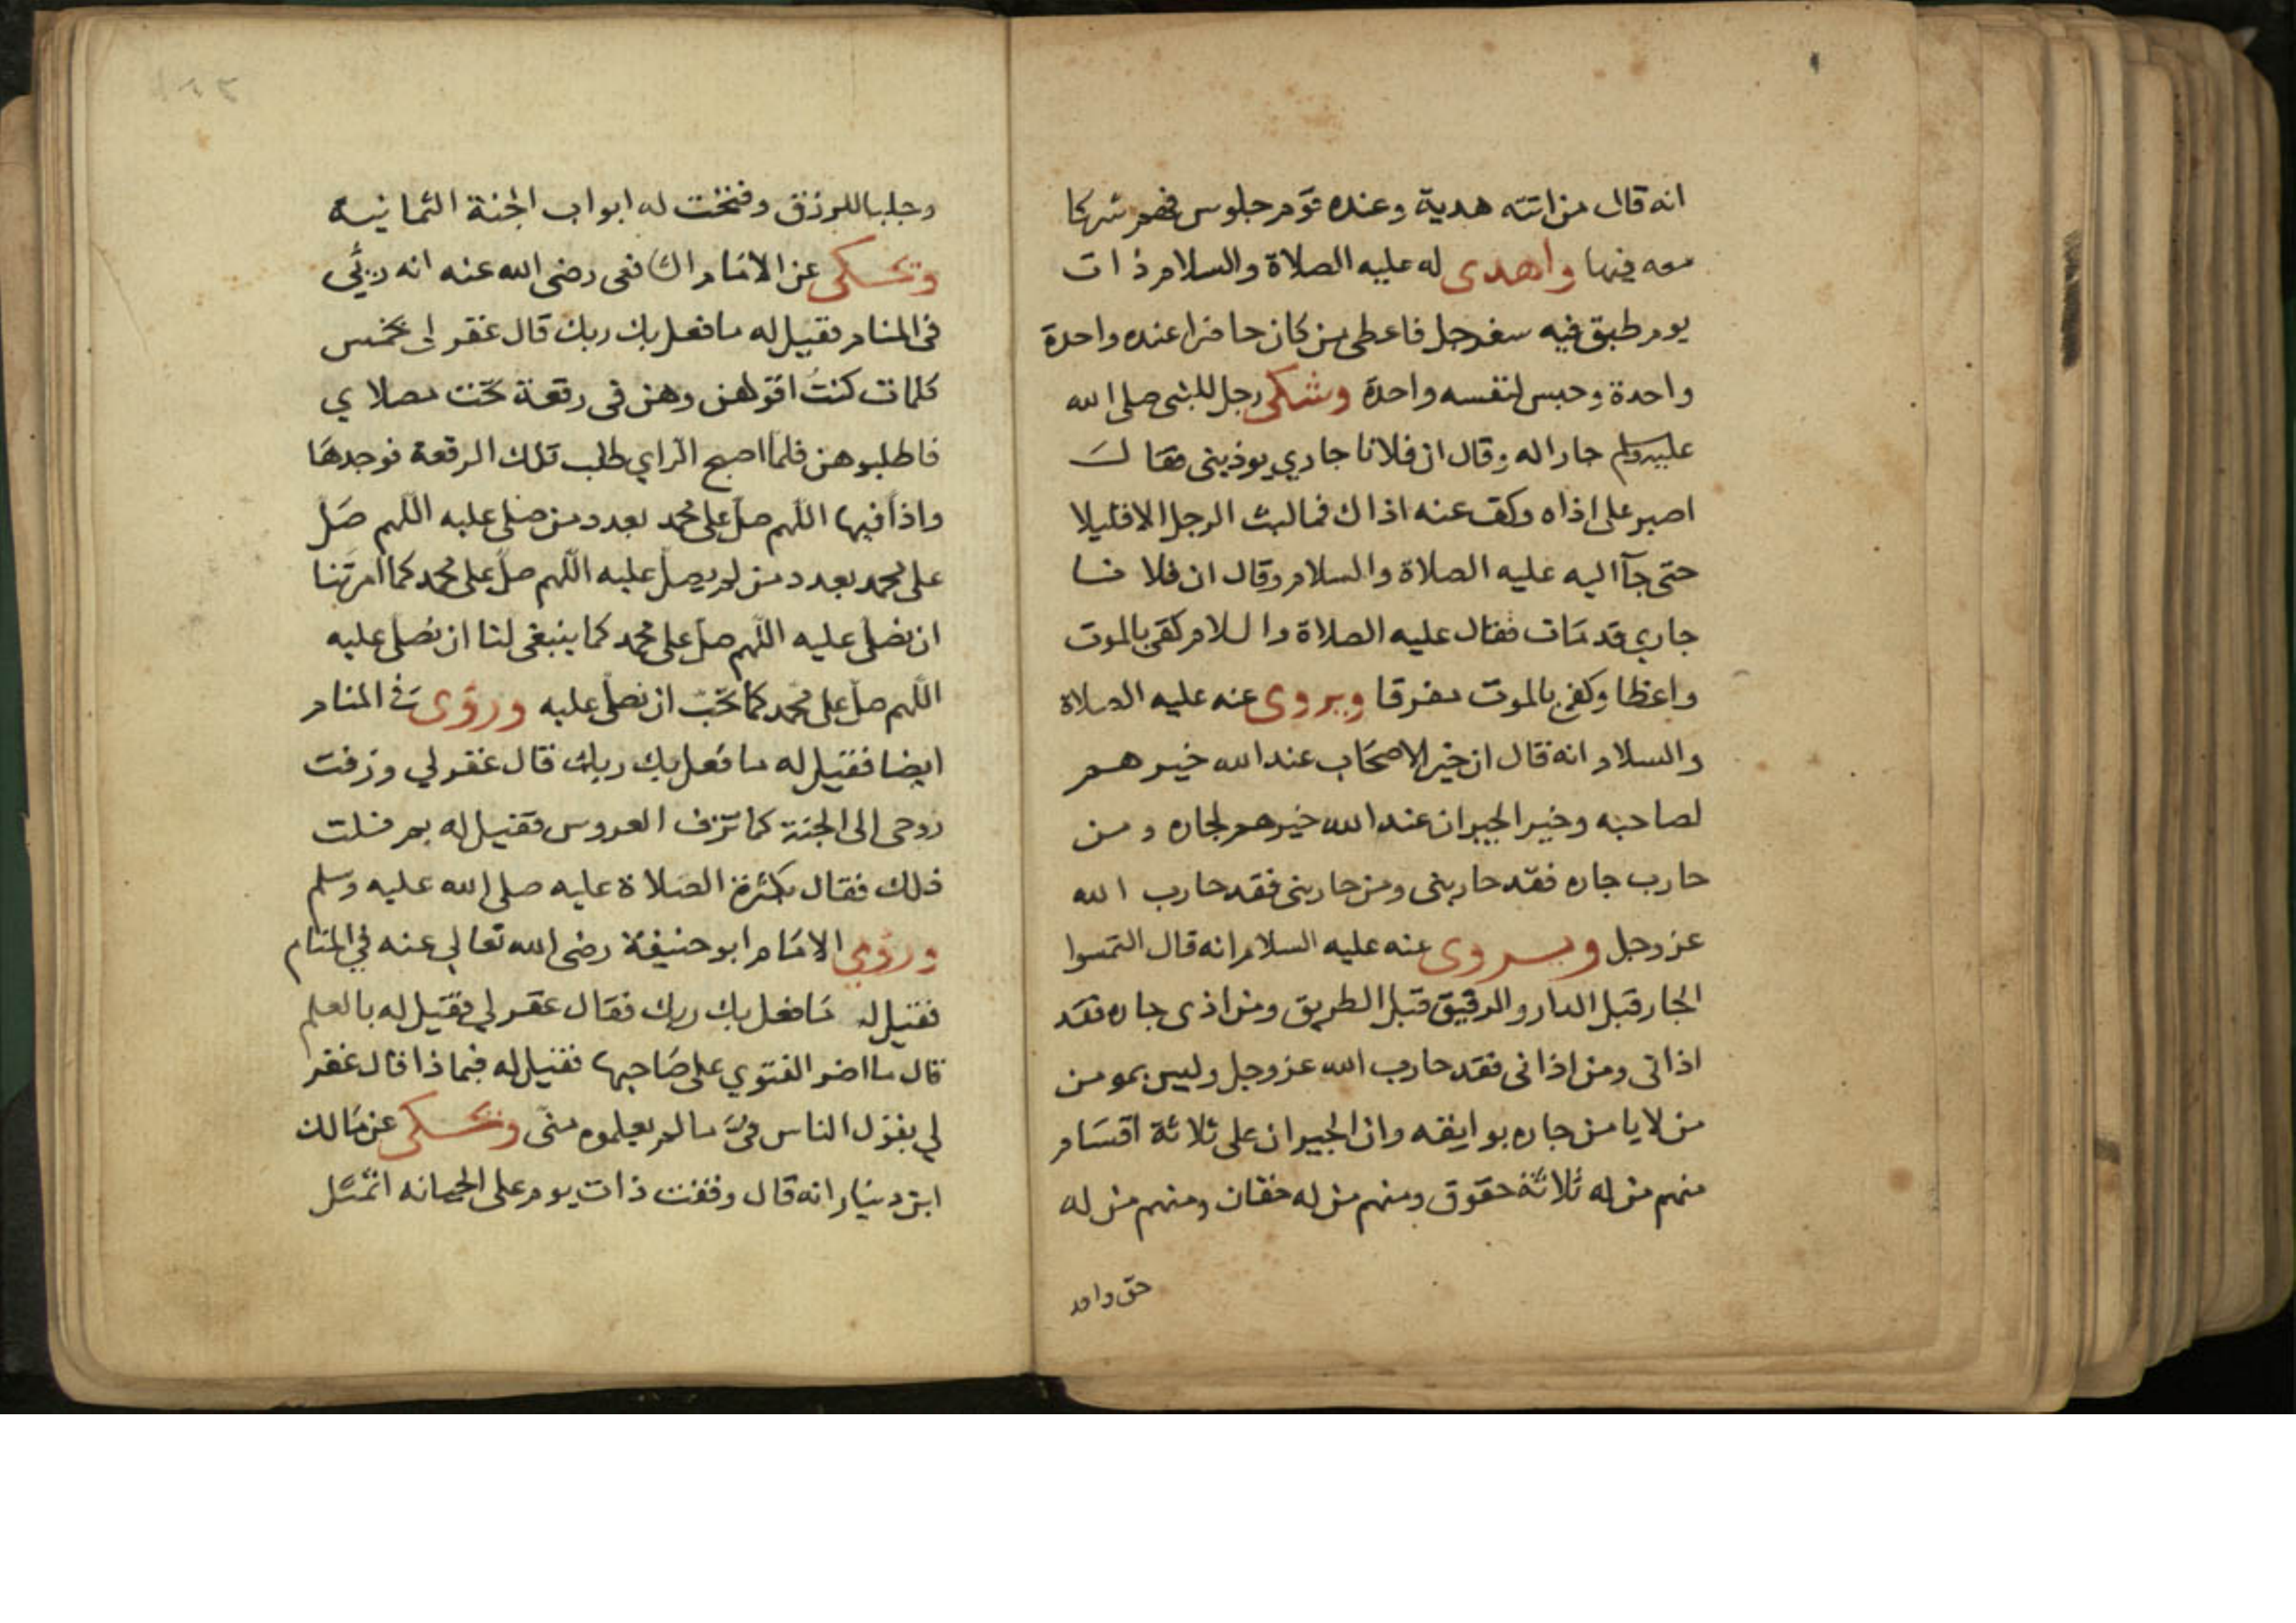 انه قال من اتته هدية وعنده قوم جلوس فهم شركا
معه فيها واهدى له عليه الصلاة والسلام ذات
يوم طبق فيه سفرجل فاعطى من كان حاضرا عنده واحدة
واحدة وحبس لنفسه واحدة وشكى رجل للنبى صلى الله
عليه وسلم جارا له وقال ان فلانا جاري يوذينى فقال
اصبر على اذاه وكف عنه اذاك فما لبث الرجل الا قليلا
حتى جآ اليه عليه الصلاة والسلام وقال ان فلانا
جاري قد مات فقال عليه الصلاة والسلام كفى بالموت
واعظا وكفى بالموت مفرقا ويروى عنه عليه الصلاة
والسلام انه قال ان خير الاصحاب عند الله خيرهم
لصاحبه وخير الجيران عند الله خيرهم لجاره ومن
حارب جاره فقد حاربنى ومن حاربنى فقد حارب الله
عز وجل ويروى عنه عليه السلام انه قال التمسوا
الجار قبل الدار والرفيق قبل الطريق ومن اذى جاره فقد
اذانى ومن اذانى فقد حارب الله عز وجل وليس بمومن
من لا يامن جاره بوايقه وان الجيران على ثلاثة اقسام
منهم من له ثلاثة حقوق ومنهم من له حقان ومنهم من له
حق واحد
وجلبا للرزق وفتحت له ابواب الجنة الثمانية
وتحكى عن الامام الشافعى رضى الله عنه انه ريئي
فى المنام فقيل له ما فعل بك ربك قال غفر لى بخمس
كلمات كنت اقولهن وهن فى رقعة تحت مصلاي
فاطلبوهن فلما اصبح الراي طلب تلك الرقعة فوجدها
واذا فيها اللهم صل على محمد بعدد من صلى عليه اللهم صل
على محمد بعدد من لم يصل عليه اللهم صل على محمد كما امرتنا
ان نصلى عليه اللهم صل على محمد كما ينبغى لنا ان نصلى عليه
اللهم صل على محمد كما تحب ان نصلى عليه ورؤى فى المنام
ايضا فقيل له ما فعل بك ربك قال غفر لي وزفت
روحى الى الجنة كما تزف العروس فقيل له بم نلت
ذلك فقال بكثرة الصلاة عليه صلى الله عليه وسلم
ورؤي الامام ابو حنيفة رضى الله تعالي عنه في المنام
فقيل له ما فعل بك ربك فقال غفر لي فقيل له بالعلم
قال ما اضر الفتوي على صاحبها فقيل له فبماذا قال غفر
لي بقول الناس فىّ ما لم يعلموه منى وتحكى عن مالك
ابن دينار انه قال وقفت ذات يوم على الجبانه اتمثل